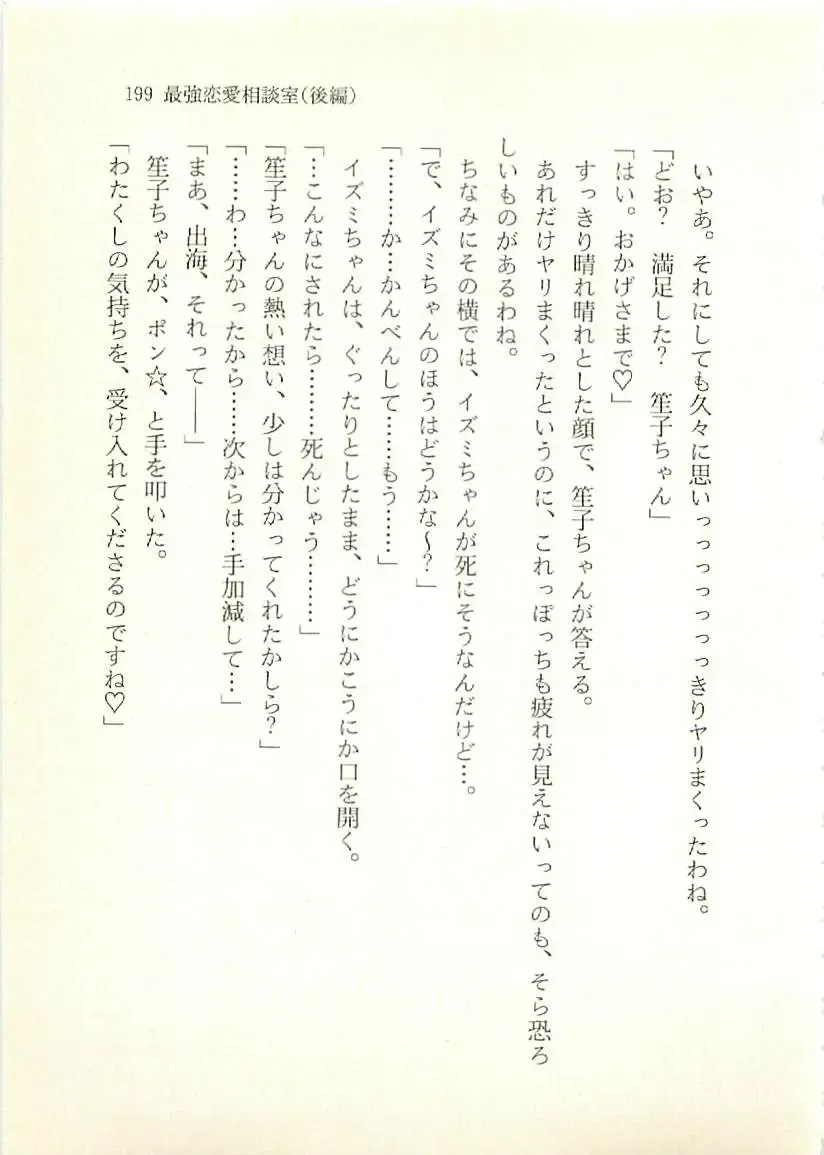 199 最強恋愛相談室(後編)
いやあ。それにしても久々に思いっっっっっっっきりヤリまくったわね。
「どお？　満足した？　笙子ちゃん」
「はい。おかげさまで♡」
すっきり晴れ晴れとした顔で、笙子ちゃんが答える。
あれだけヤリまくったというのに、これっぽっちも疲れが見えないってのも、そら恐ろ
しいものがあるわね。
ちなみにその横では、イズミちゃんが死にそうなんだけど…。
「で、イズミちゃんのほうはどうかな～？」
「………か…かんべんして……もう……」
イズミちゃんは、ぐったりとしたまま、どうにかこうにか口を開く。
「…こんなにされたら………死んじゃう………」
「笙子ちゃんの熱い想い、少しは分かってくれたかしら？」
「……わ…分かったから……次からは…手加減して…」
「まあ、出海、それって――」
笙子ちゃんが、ポン☆、と手を叩いた。
「わたくしの気持ちを、受け入れてくださるのですね♡」